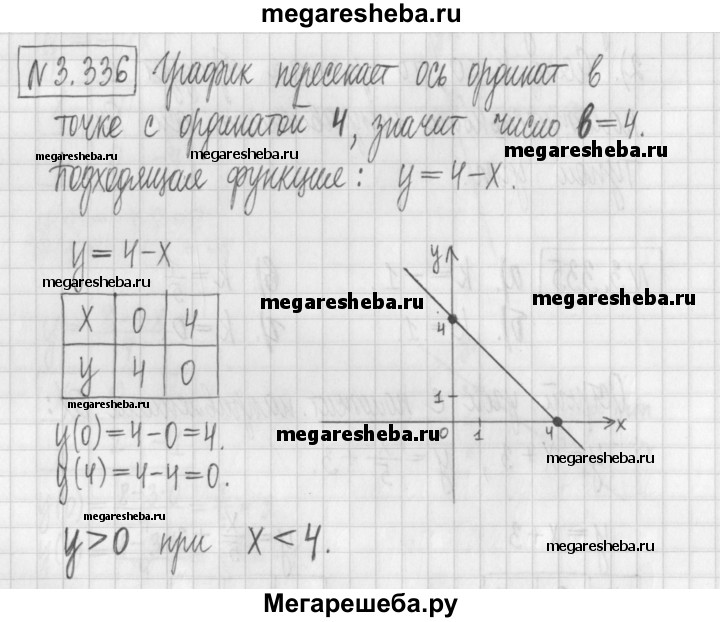 megaresheba.ru
N 3.336 График пересекает ось ординат в
точке с ординатой 4, значит число b=4.
megaresheba.ru megaresheba.ru megaresheba.ru
Подходящая функция: y=4-x.
y=4-x
megaresheba.ru
x 0 4
y 4 0
megaresheba.ru
y(0)=4-0=4.
y(4)=4-4=0.
y
megaresheba.ru megaresheba.ru
4
1
0 1 4 x
megaresheba.ru
megaresheba.ru
megaresheba.ru
y>0 при x<4.
megaresheba.ru
Мегарешеба.ру